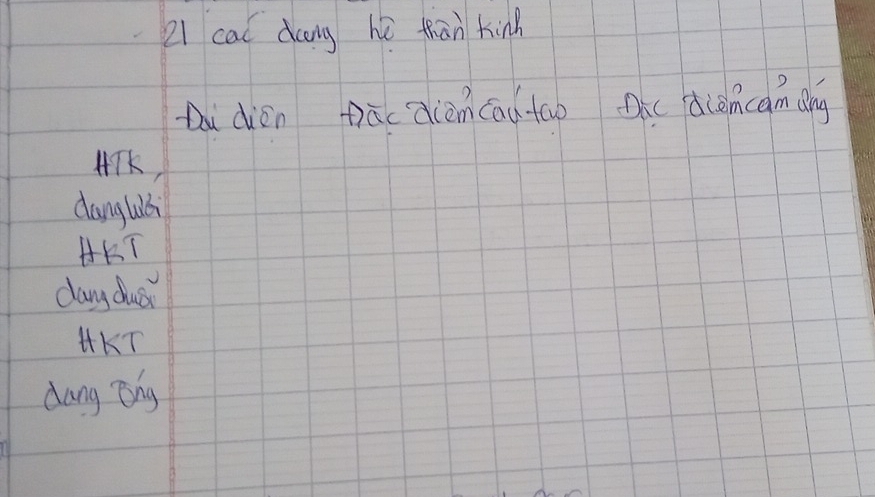 2) các dạng hệ thần kinh
Đại diện Đặc điểm cấu tạo Đặc điểm cảm ứng
HTK
dạng lưới
HKT
dạng chuỗi
HKT
dạng ống